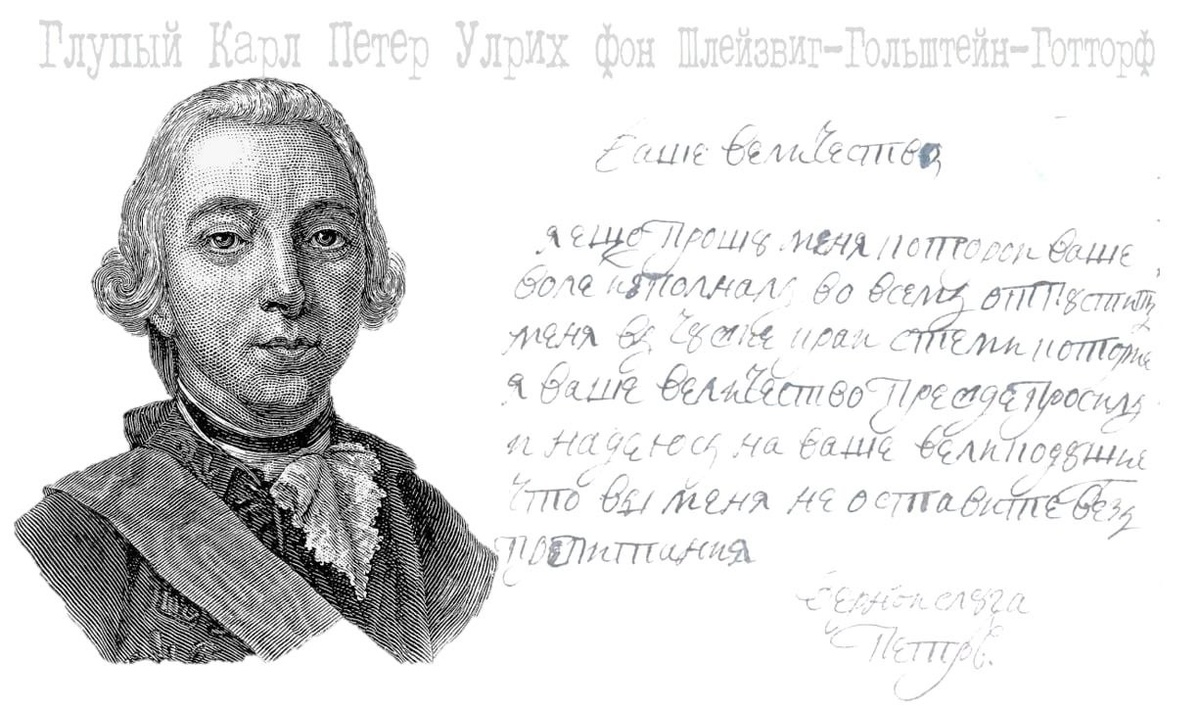 Глупый Карл Петер Улрих фон Шлейзвиг-Гольштейн-Готторф
Ваше величество
я ещо прошу меня которой ваше
воле исполналъ во всемъ отпустить
меня въ чужие краи стеми которие
я ваше величество прежде просилъ
и надеюсь на ваше великодушие
что вы меня не оставите безъ
пропитания
верной слуга
Петръ.